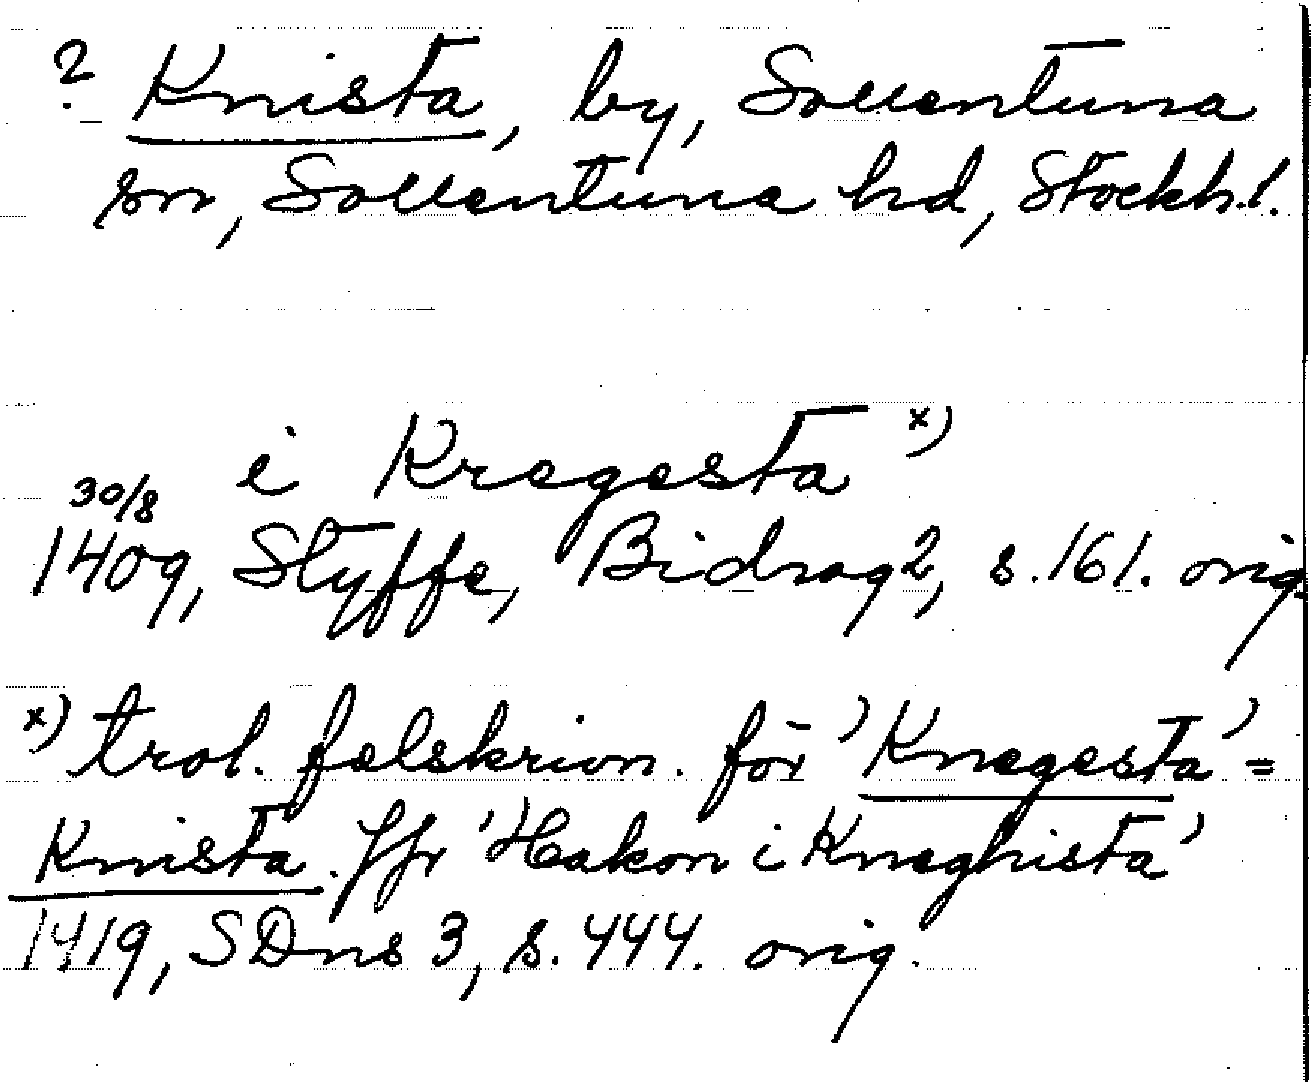 ? Knista, by, Sollentuna
sn, Sollentuna hd, Stockh. l.
i Kregesta x)
30/8
1409, Styffe, Bidrag 2, s. 161. orig.
x) trol. felskrivn. för 'Knegesta' =
Knista. Jfr 'Hakon i Kneghista'
1419, SDns 3, s. 444. orig.